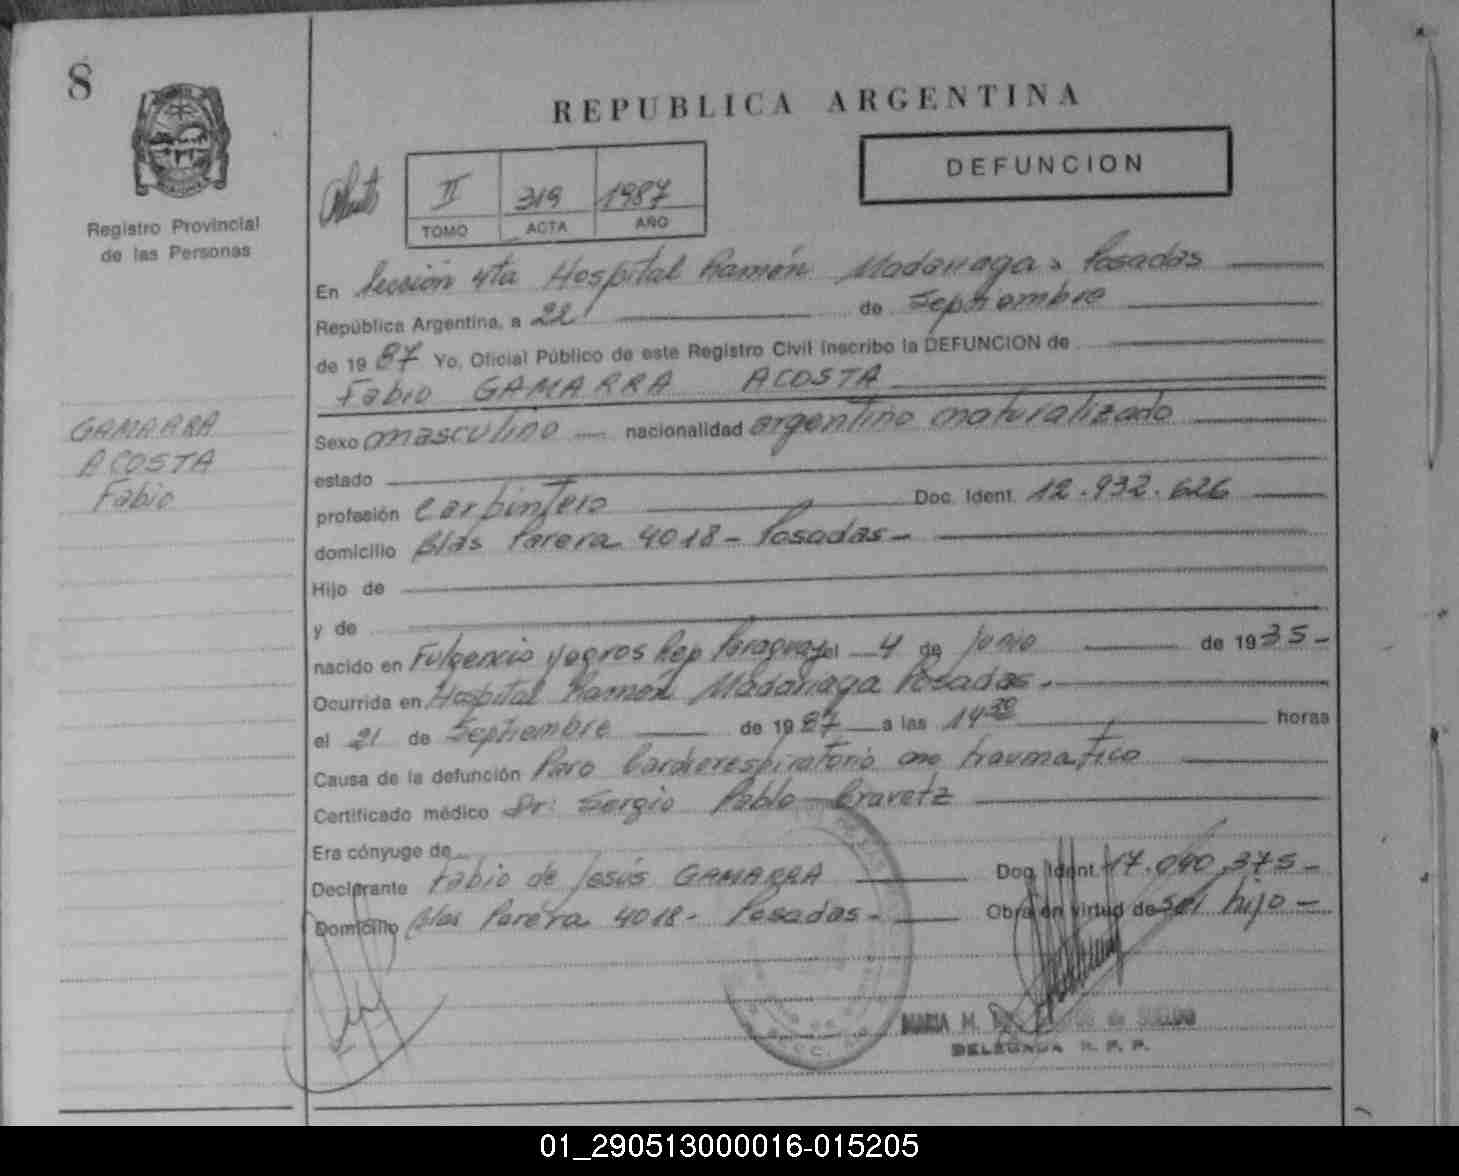 8
REPUBLICA ARGENTINA
DEFUNCION
II 319 1987
TOMO ACTA AÑO
Registro Provincial
de las Personas
En Sección 4ta Hospital Ramón Madariaga Posadas
República Argentina, a 22 de Septiembre
de 1987 Yo, Oficial Público de este Registro Civil inscribo la DEFUNCION de
Fabio GAMARRA ACOSTA
GAMARRA
ACOSTA
Fabio
Sexo masculino nacionalidad argentino naturalizado
estado
profesión Carpintero Doc. Ident. 12.932.626
domicilio Blas Parera 4018 - Posadas -
Hijo de
y de
nacido en Fulgencio yegros Rep Paraguay el 4 de junio de 1935 -
Ocurrida en Hospital Ramón Madariaga Posadas -
el 21 de Septiembre de 1987 a las 14 30 horas
Causa de la defunción Paro Cardiorespiratorio no traumatico
Certificado médico Dr: Sergio Pablo Cravetz
Era cónyuge de
Declarante Fabio de Jesús GAMARRA Doc. Ident. 17.040.375 -
Domicilio Blas Parera 4018 - Posadas - Obra en virtud de ser hijo -
MARIA M.
DELEGADA R. P. P.
01_290513000016-015205